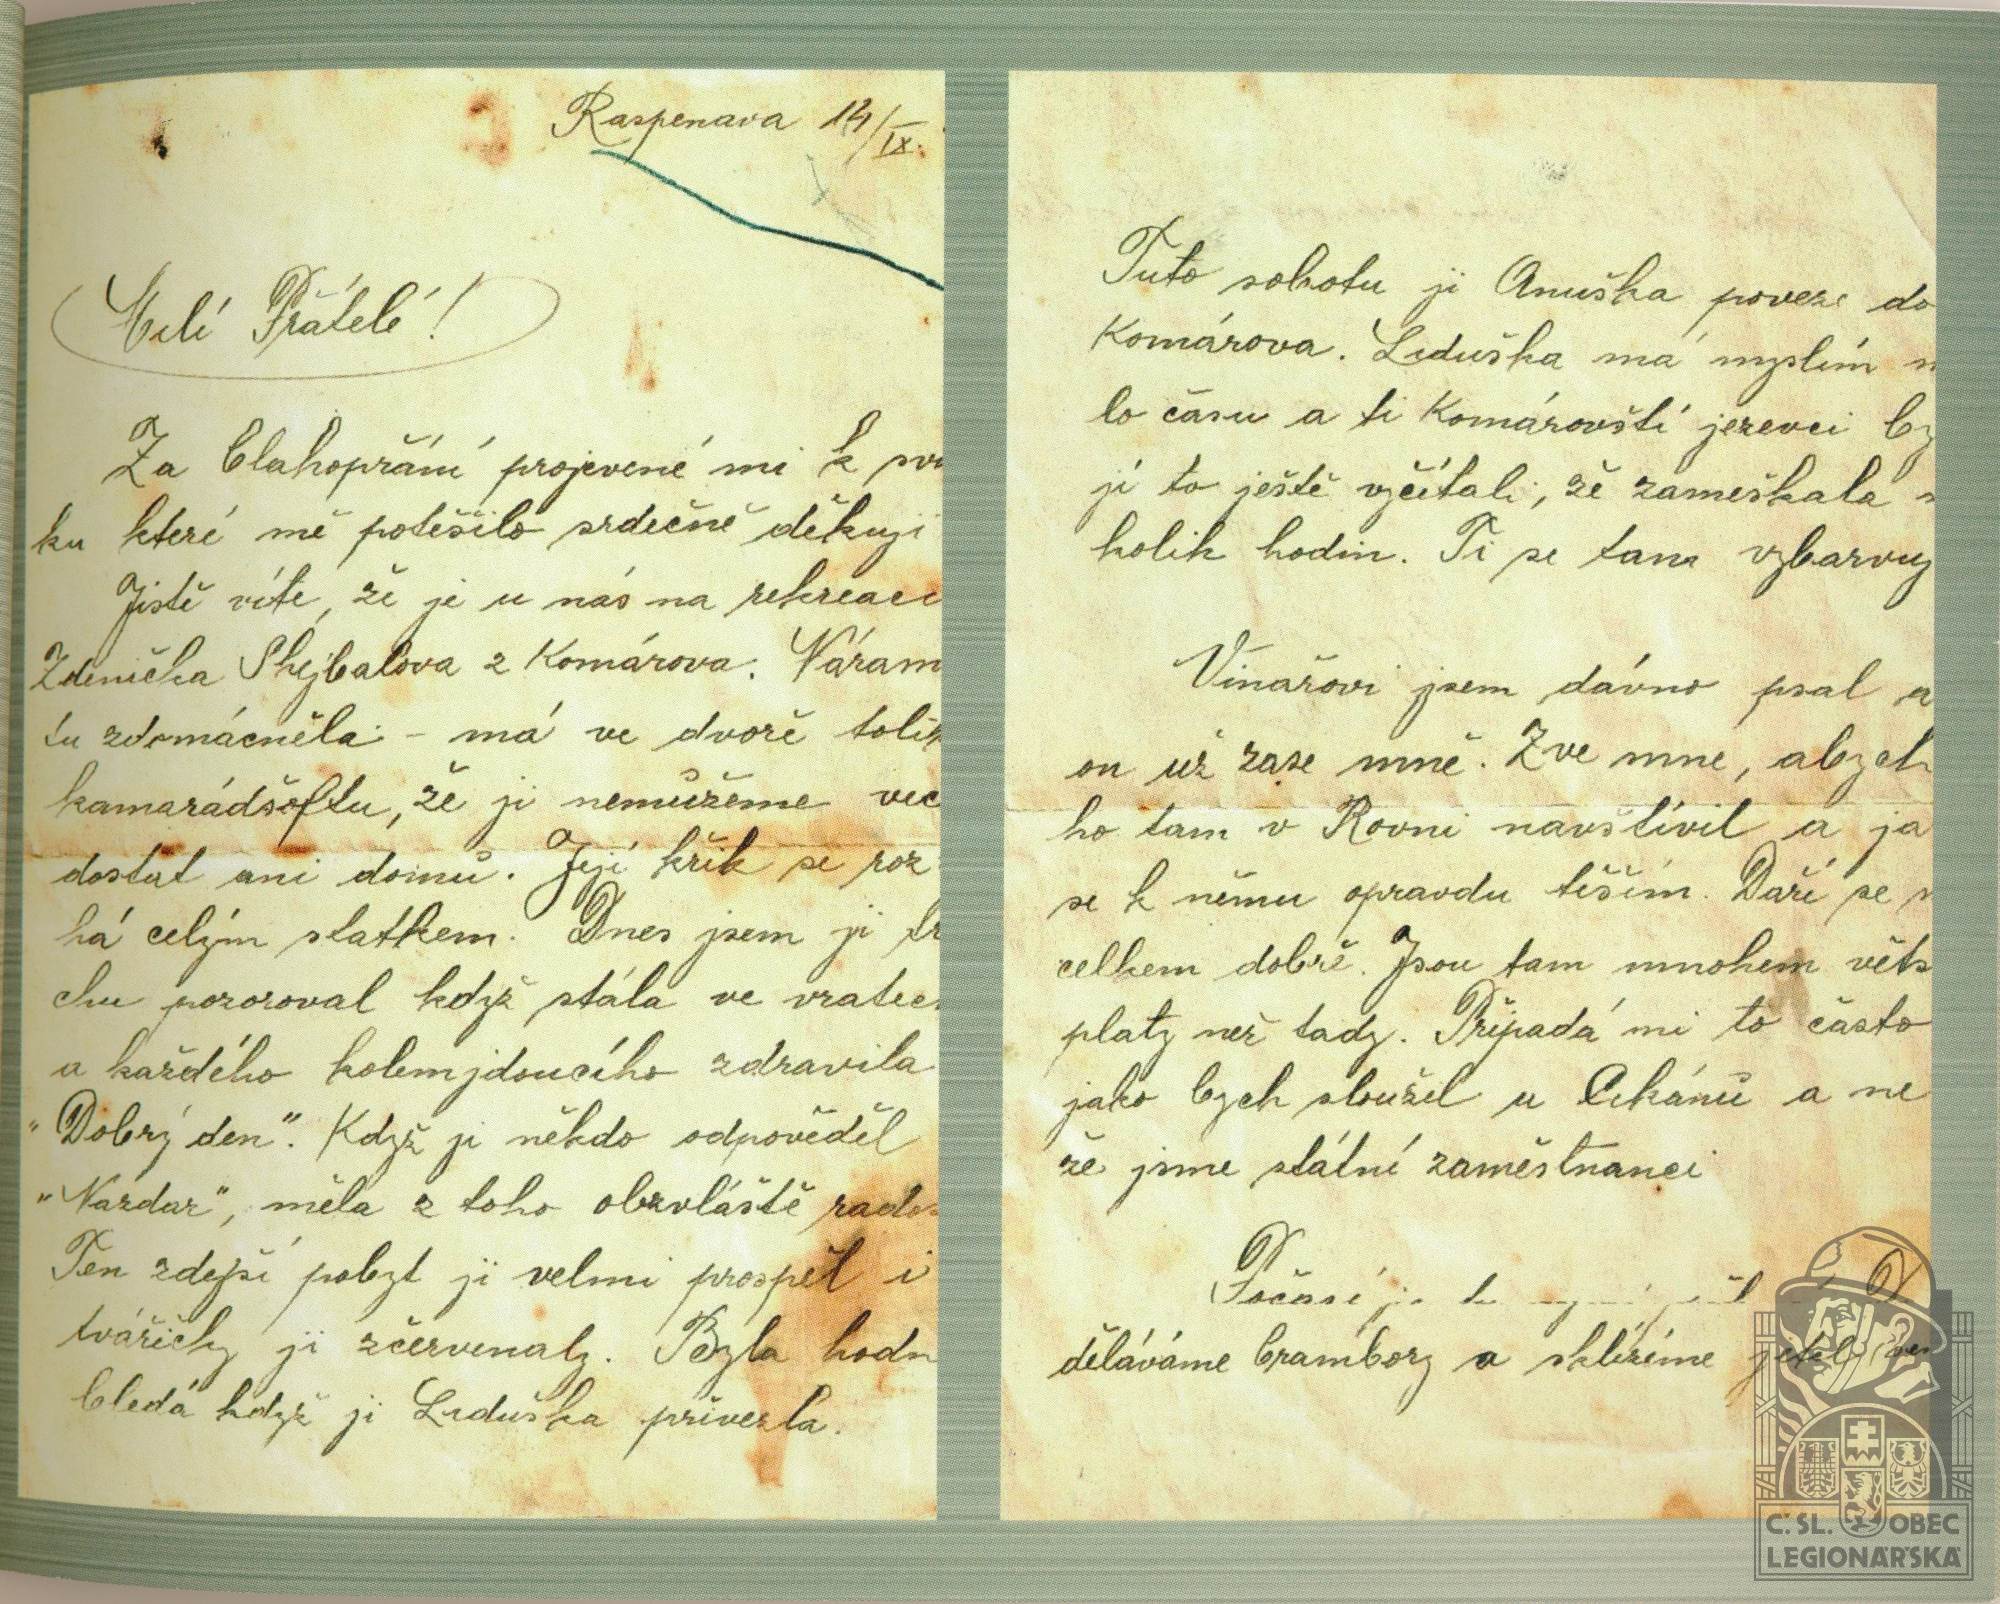 Raspenava 14/IX.
Milí Přátelé!
Za blahopřání projevené mi k
ku které mě potěšilo srdečně děkuji
Jistě víte, že je u nás na rekreaci
Zdenička Škejbalova z Komárova. Náram
tu zdomácněla - má ve dvoře tolik
kamarádšoftu, že ji nemůžeme več
dostat ani domů. Její křik se roz
há celým statkem. Dnes jsem ji tr
chu pozoroval když stála ve vratech
a každého kolemjdoucího zdravila
"Dobrý den". Když ji někdo odpověděl
"Nazdar", měla z toho obzvláště rados
Ten zdejší pobyt ji velmi prospěl i
tvářičky ji zčervenaly. Byla hodn
bledá když ji Liduška přivezla.
Tuto sobotu ji Anuška poveze do
Komárova. Liduška má myslím m
lo času a ti Komárovští jezevci by
jí to ještě vyčítali, že zameškala
kolik hodin. Ti se tam vybarvuj
Vinařovi jsem dávno psal a
on už zase mně. Zve mne, abych
ho tam v Rovni navštívil a ja
se k němu opravdu těším. Daří se m
celkem dobře. Jsou tam mnohem větš
platy než tady. Připadá mi to často
jako bych sloužil u Cikánů a ne
že jsme státní zaměstnanci
Počasí je
děláváme brambory a sklízíme jetel
Č.SL. OBEC
LEGIONÁŘSKÁ